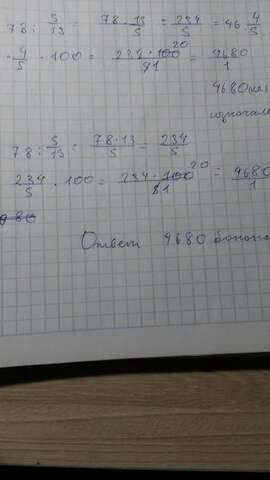 78 : 5/13 = 78·13/5 = 234/5 = 46 4/5
4/5 · 100 = 234·100 20/51 = 9680/1
9680
изначал
78 : 5/13 = 78·13/5 = 234/5
234/5 · 100 = 234·100 20/51 = 9680/1
Ответ 9680